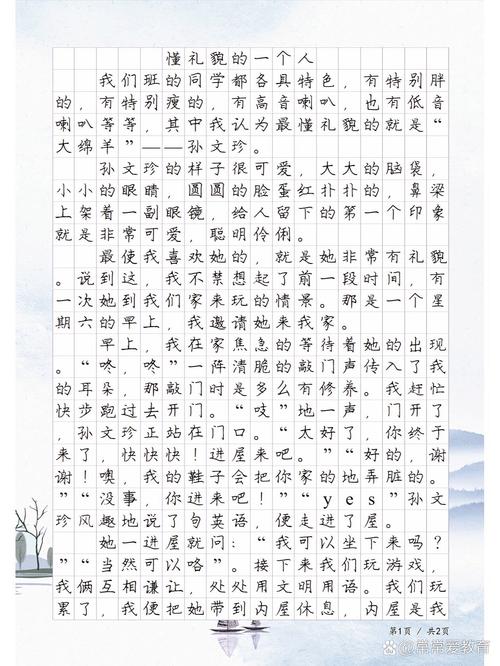 懂礼貌的一个人
我们班的同学都各具特色，有特别胖
的，有特别瘦的，有高音喇叭，也有低音
喇叭等等，其中我认为最懂礼貌的就是“
大绵羊”——孙文珍。
孙文珍的样子很可爱，大大的脑袋，
小小的眼睛，圆圆的脸蛋红扑扑的，鼻梁
上架着一副眼镜，给人留下的第一个印象
就是非常可爱，聪明伶俐。
最使我喜欢她的，就是她非常有礼貌
。说到这，我不禁想起了前一段时间，有
一次她到我们家来玩的情景。那是一个星
期六的早上，我邀请她来我家。
早上，我在家焦急的等待着她的出现
。“咚，咚”一阵清脆的敲门声传入了我
的耳朵，那敲门时是多么有修养。我赶忙
快步跑过去开门。“吱”地一声，门开了
，孙文珍正站在门口。“太好了，你终于
来了，快快快！进屋来吧。”“好的，谢
谢！噢，我的鞋子会把你家的地弄脏的。
”“没事，你进来吧！”“yes”孙文
珍风趣地说了句英语，便走进了屋。
她一进屋就问：“我可以坐下来吗？
”“当然可以咯”。接下来我们玩游戏，
我俩互相谦让，处处用文明用语。我们玩
累了，我便把她带到内屋休息，内屋是我
第1页 / 共2页
常常爱教育